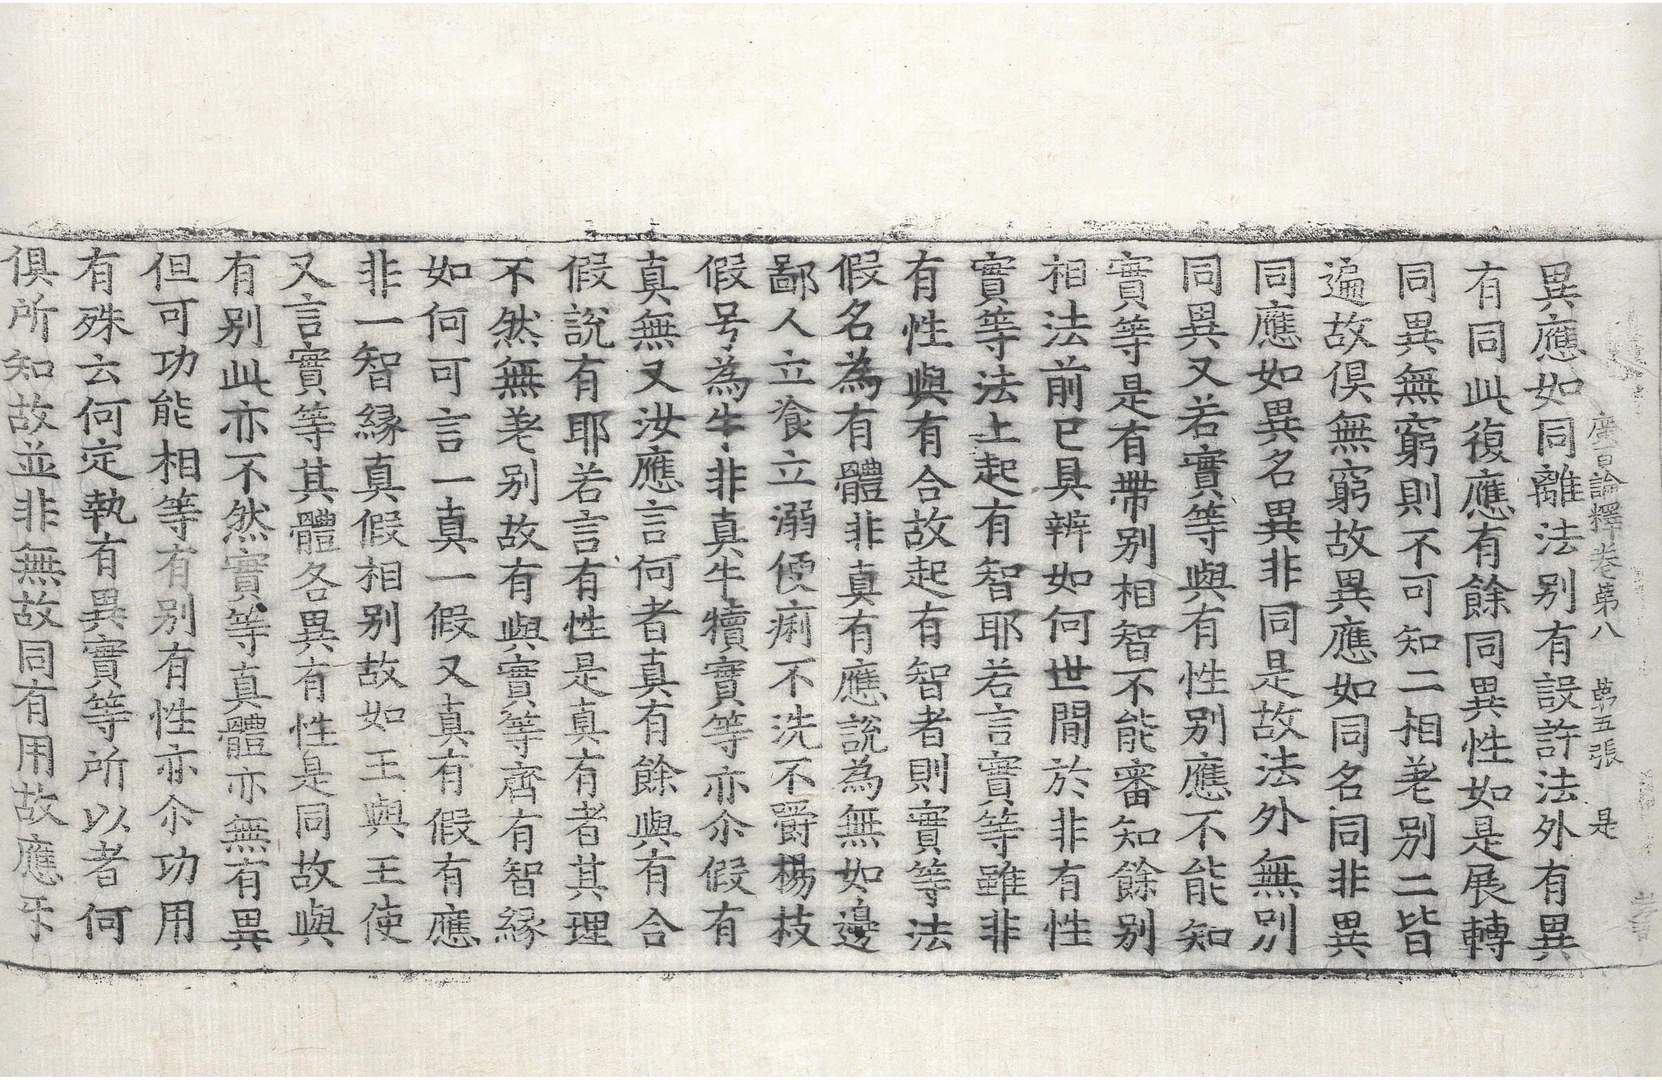 廣百論釋卷第八　第五張　是
異應如同離法别有設許法外有異
有同此復應有餘同異性如是展轉
同異無窮則不可知二相差别二皆
遍故俱無窮故異應如同名同非異
同應如異名異非同是故法外無别
同異又若實等與有性别應不能知
實等是有帶别相智不能審知餘别
相法前已具辨如何世間於非有性
實等法上起有智耶若言實等雖非
有性與有合故起有智者則實等法
假名為有體非真有應說為無如邊
鄙人立飡立溺便痢不洗不嚼楊枝
假号為牛非真牛犢實等亦尒假有
真無又汝應言何者真有餘與有合
假說有耶若言有性是真有者其理
不然無差别故有與實等齊有智緣
如何可言一真一假又真有假有應
非一智緣真假相别故如王與王使
又言實等其體各異有性是同故與
有别此亦不然實等真體亦無有異
但可功能相等有别有性亦尒功用
有殊云何定執有異實等所以者何
俱所知故並非無故同有用故應𭃄